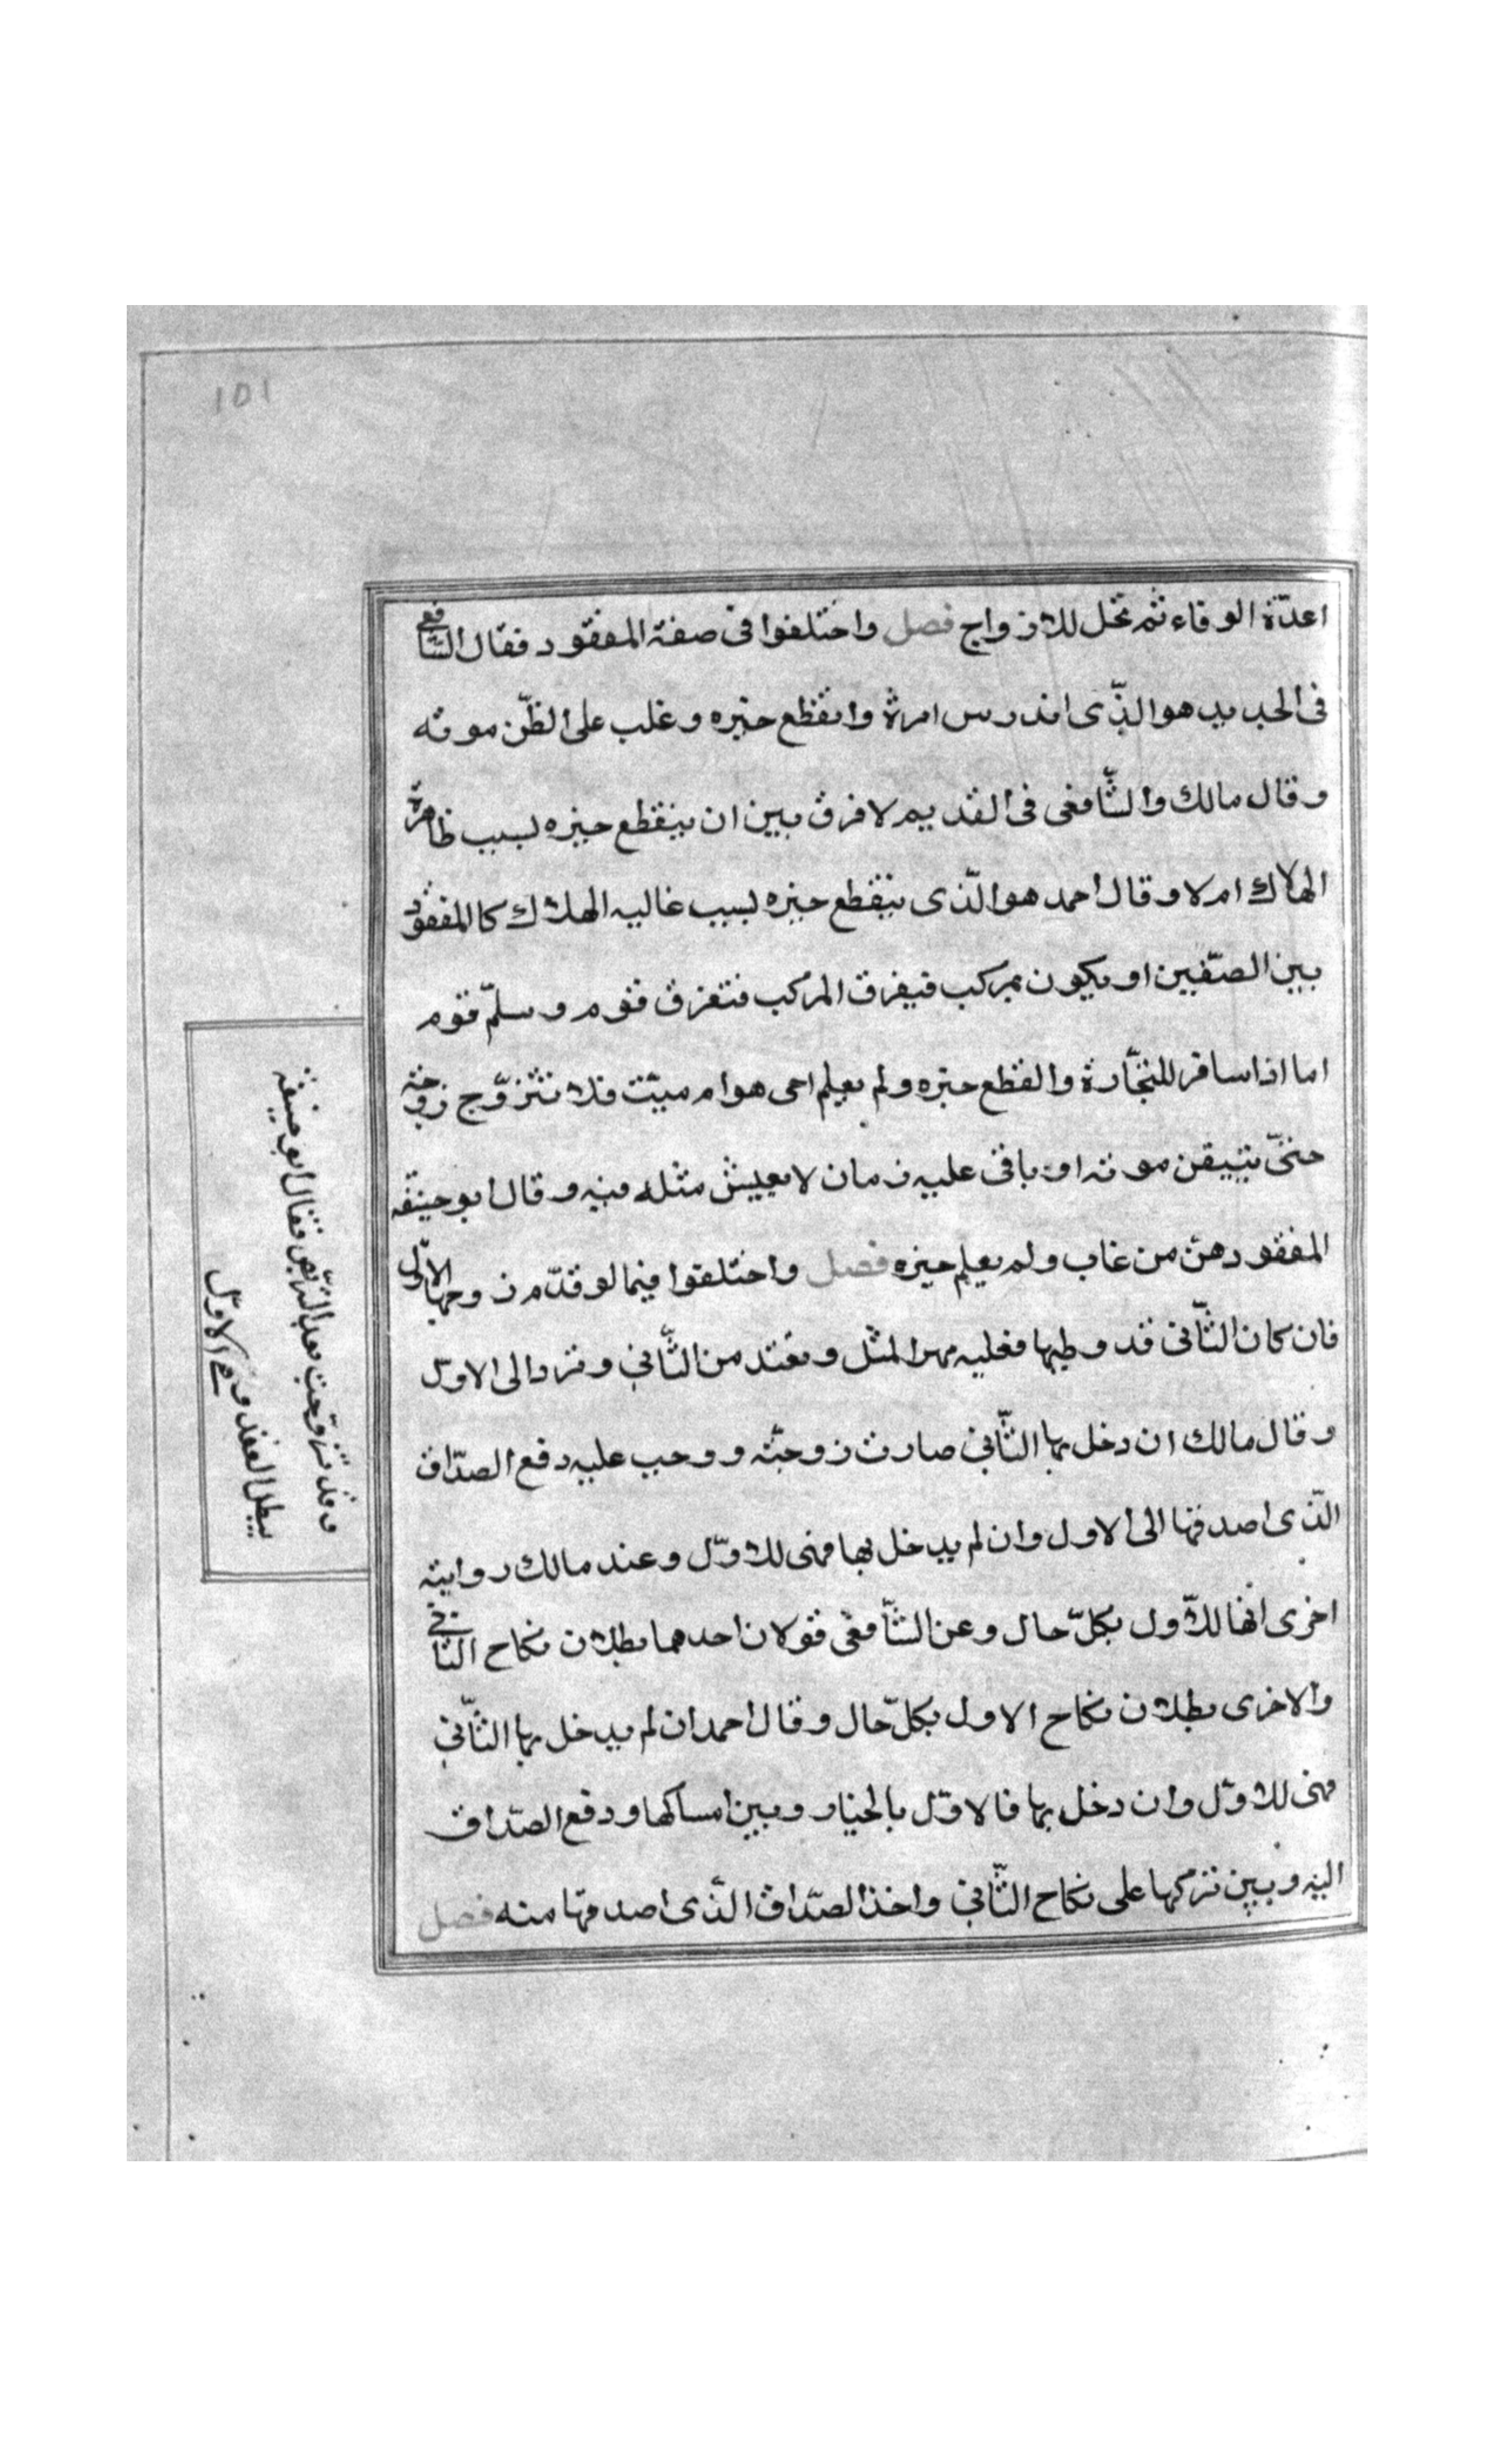 ١٥١
اعدّة الوفاء ثم تحل للازواج فصل واختلفوا فى صفة المفقود فقال الشافعى
فى الجديد هو الذّى اندرس امرة وانقطع خبره وغلب على الظّن موته
وقال مالك والشّافعى فى القديم لا فرق بين ان ينقطع خبره بسبب ظاهرة
الهلاك ام لا وقال احمد هو الّذى ينقطع خبره بسبب غاليه الهلاك كالمفقود
بين الصّفين او يكون بمركب فيغرق المركب فتغرق قوم وسلّم قوم
اما اذا سافر للتجّارة وانقطع خبره ولم يعلم احى هو ام ميّت فلا تتزوّج زوجته
حتىّ يتيقن موته او باقى عليه زمان لا يعيش مثله فيه وقال ابو حنيفه
المفقود هن من غاب ولم يعلم خبره فصل واختلفوا فيما لو قدّم زوجها الاوّلى
فان كان الثّانى قد وطيها فعليه مهر المثل وتعتد من الثّانى وتزد الى الاوّل
وقال مالك ان دخل بها الثّانى صارت زوجتّه ووجب عليه دفع الصدّاق
الذّى اصدقها الى الاول وان لم يدخل بها فهى للاوّل وعند مالك رواية
اخرى انها للاّول بكلّ حال وعن الشّافعى قولان احدهما بطلان نكاح الثانى
والاخرى بطلان نكاح الاول بكلّ حال وقال احمد ان لم يدخل بها الثّانى
فهى للاوّل وان دخل بها فالاوّل بالخيار وبين امساكها ودفع الصّداق
اليه وبين تركها على نكاح الثّانى واخذ الصّداق الذّى اصدقها منه فصل
وقد تزوّجت بعد التربّص فقال ابو حنيفه
يبطل العقد وهى للاوّل